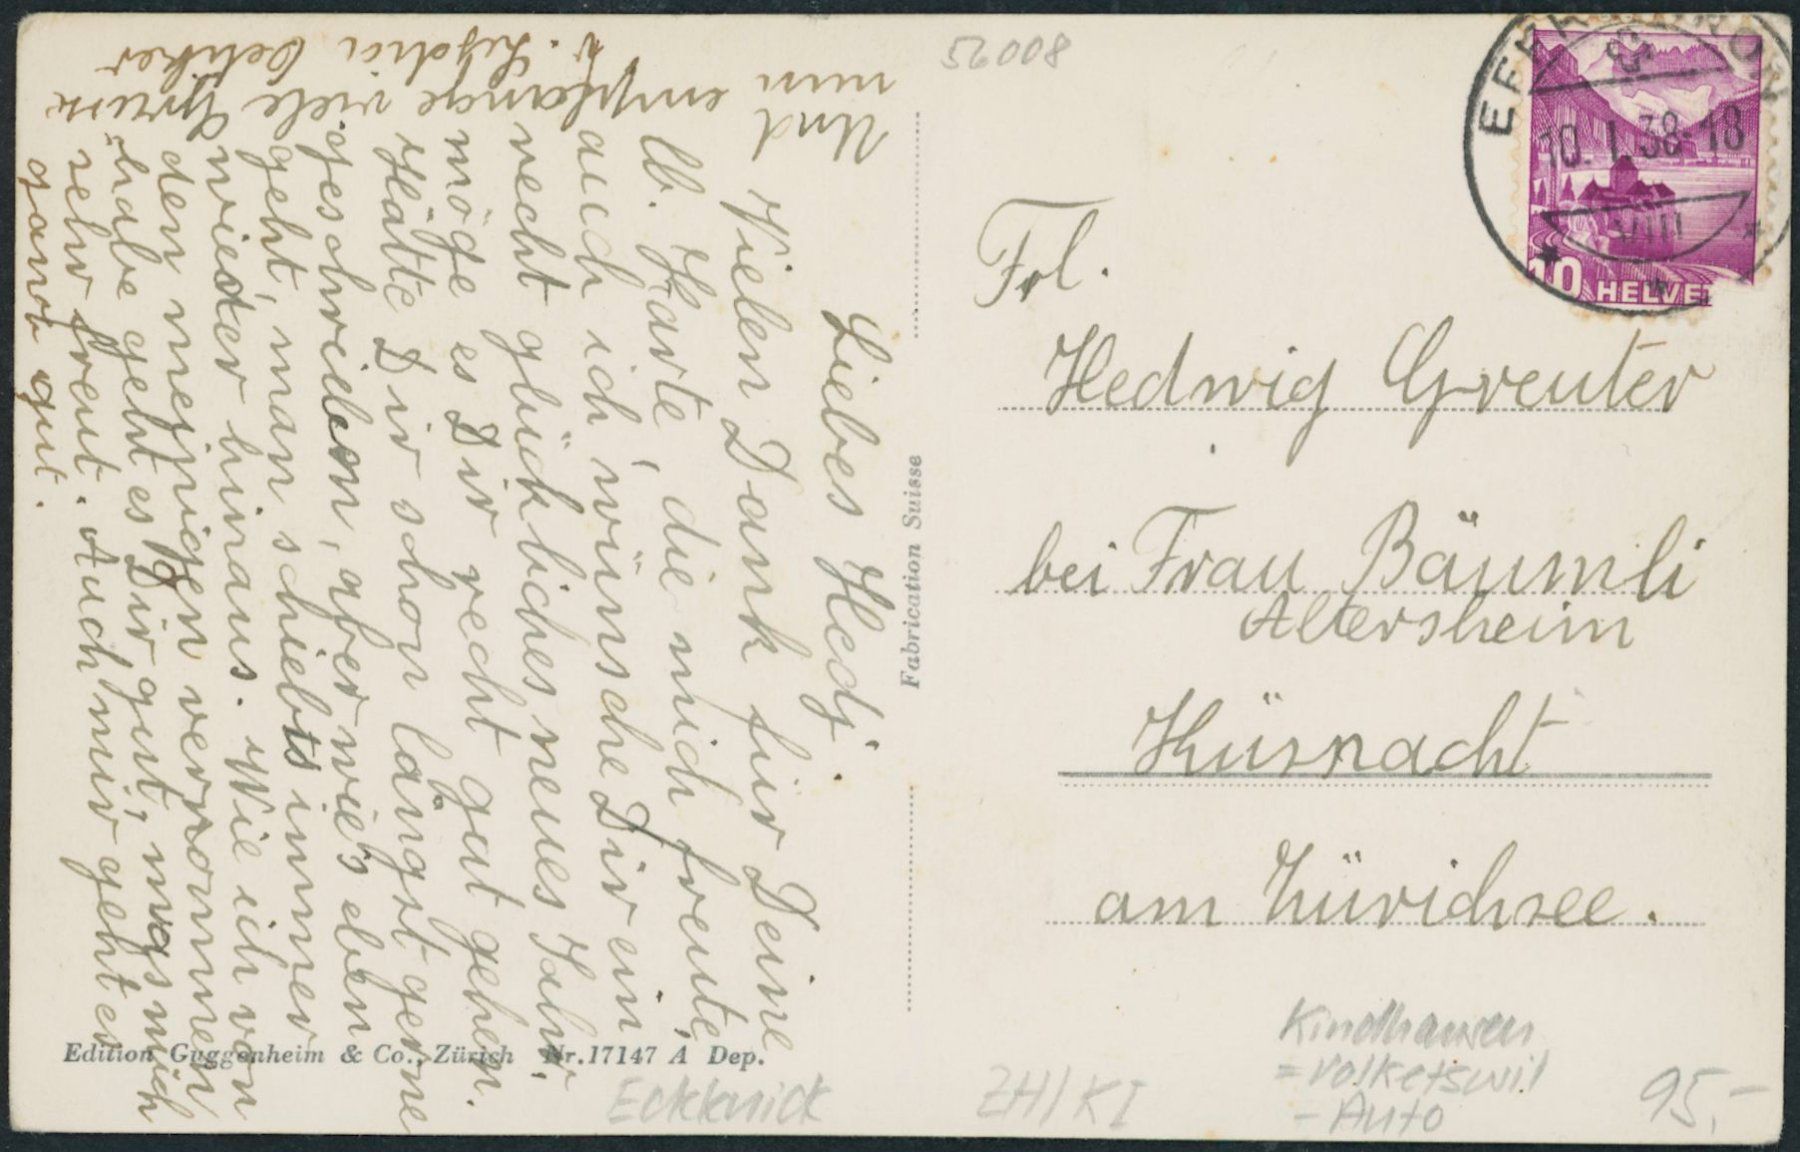 56008
EFFRETIKON
10.I.38-18
10 HELVET
Liebes Hedj.
Vielen Dank für Deine
lb. Karte, die mich freute
auch ich wünsche Dir ein
recht glückliches neues Jahr.
möge es Dir recht gut gehen.
Hätte Dir schon längst gerne
geschrieben, aber wie's eben
geht, man schiebts immer
wieder hinaus. Wie ich von
den mejnigen vernommen
habe geht es Dir gut, was mich
sehr freut. Auch mir geht es
ganb gut.
Und
nun empfange viele Grüsse
v.
Fabrication Suisse
Frl.
Hedwig Greuter
bei Frau Bäumli
Altersheim
Küsnacht
am Zürichsee.
Edition Guggenheim & Co., Zürich Nr. 17147 A Dep.
Eckknick
ZH/KI
Kindhausen
=Volketswil
- Auto
95.-